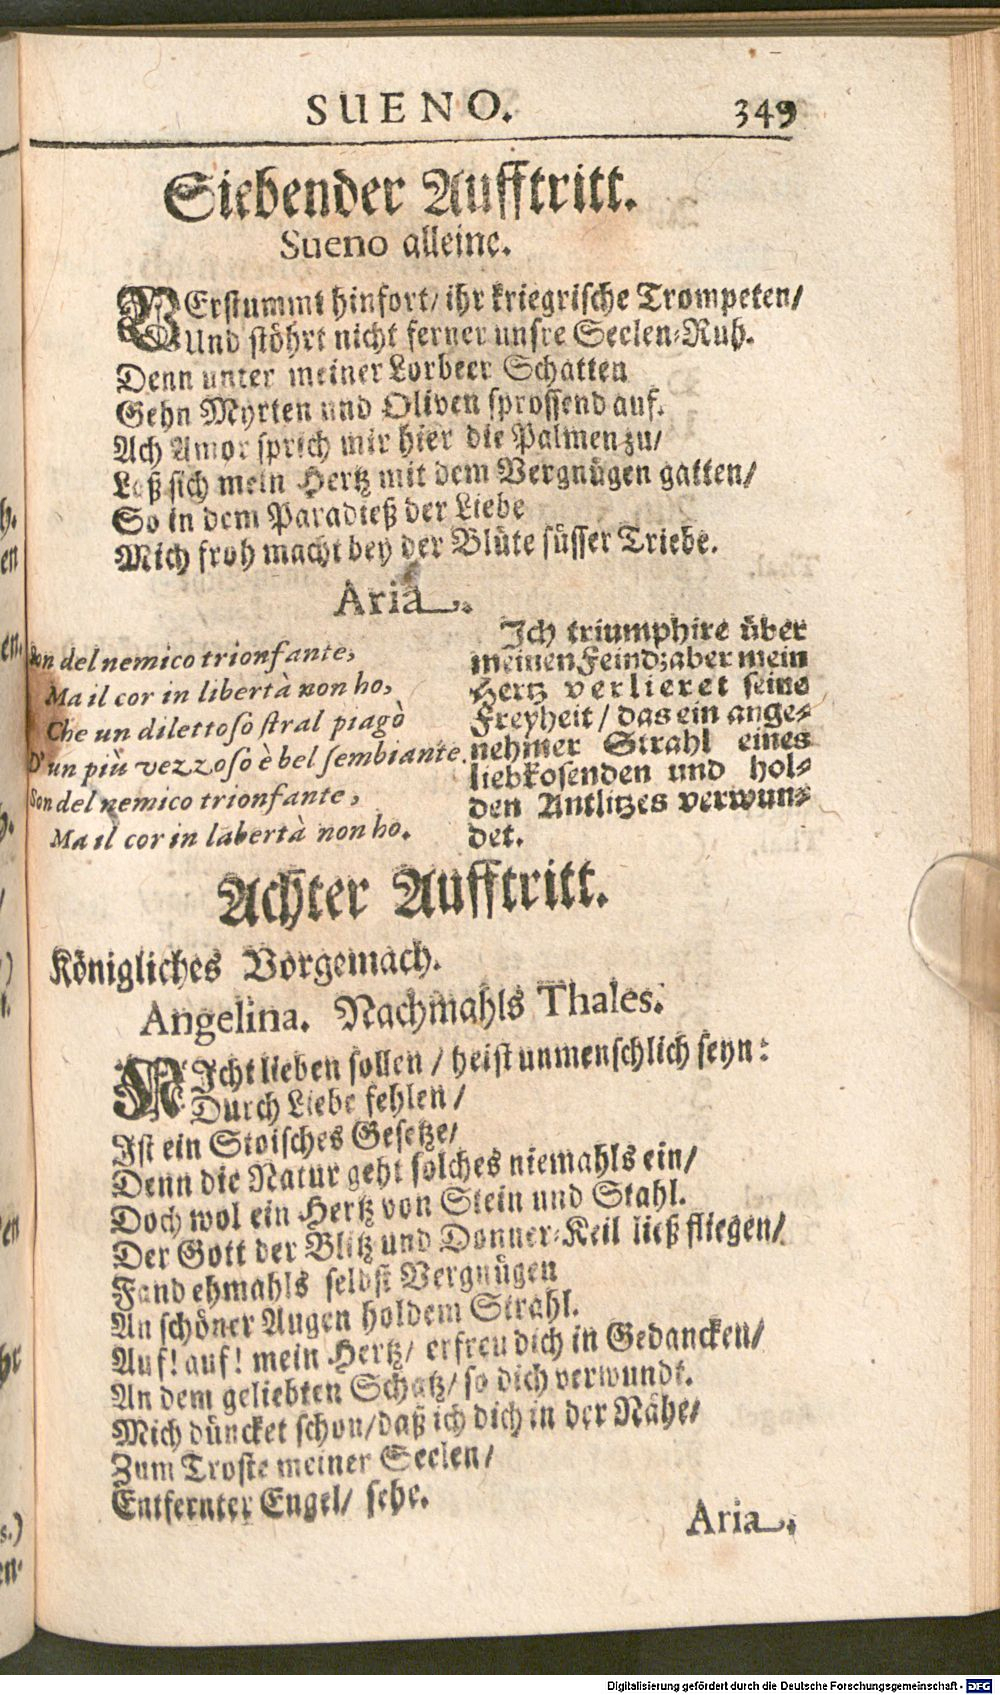 SUENO. 349
Siebender Aufftritt.
Sueno alleine.
VErstummt hinfort/ ihr kriegrische Trompeten/
Und stöhrt nicht ferner unsre Seelen-Ruh.
Denn unter meiner Lorbeer Schatten
Gehn Myrten und Oliven sprossend auf.
Ach Amor sprich mir hier die Palmen zu/
Laß sich mein Hertz mit dem Vergnügen gatten/
So in dem Paradieß der Liebe
Mich froh macht bey der Blüte süsser Triebe.
Aria.
Son del nemico trionfante,
Ma il cor in libertà non ho,
Che un dilettoso stral piagò
D'un più vezzoso è bel sembiante.
Son del nemico trionfante,
Ma il cor in labertà non ho.
Ich triumphire über
meinen Feind; aber mein
Hertz verlieret seine
Freyheit/ das ein ange-
nehmer Strahl eines
liebkosenden und hol-
den Antlitzes verwun-
det.
Achter Aufftritt.
Königliches Vorgemach.
Angelina. Nachmahls Thales.
NIcht lieben sollen/ heist unmenschlich seyn:
Durch Liebe fehlen/
Ist ein Stoisches Gesetze/
Denn die Natur geht solches niemahls ein/
Doch wol ein Hertz von Stein und Stahl.
Der Gott der Blitz und Donner-Keil ließ fliegen/
Fand ehmahls selbst Vergnügen
An schöner Augen holdem Strahl.
Auf! auf! mein Hertz/ erfreu dich in Gedancken/
An dem geliebten Schatz/ so dich verwundt.
Mich düncket schon/ daß ich dich in der Nähe/
Zum Troste meiner Seelen/
Entfernter Engel/ sehe.
Aria.
Digitalisierung gefördert durch die Deutsche Forschungsgemeinschaft - DFG